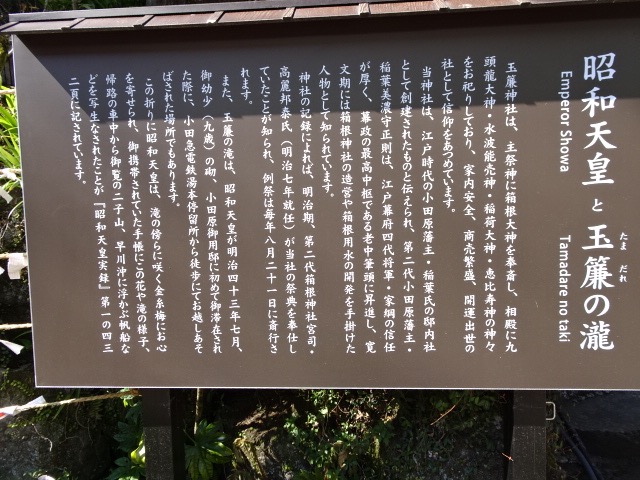 昭和天皇と玉簾の瀧
たま だれ
Emperor Showa Tamadare no taki
玉簾神社は、主祭神に箱根大神を奉斎し、相殿に九
頭龍大神・水波能売神・稲荷大神・恵比寿神の神々
をお祀りしており、家内安全、商売繁盛、開運出世の
社として信仰をあつめています。
当神社は、江戸時代の小田原藩主・稲葉氏の邸内社
として創建されたものと伝えられ、第二代小田原藩主・
稲葉美濃守正則は、江戸幕府四代将軍・家綱の信任
が厚く、幕政の最高中枢である老中筆頭に昇進し、寛
文期には箱根神社の造営や箱根用水の開発を手掛けた
人物として知られています。
神社の記録によれば、明治期、第二代箱根神社宮司・
高麗邦泰氏（明治七年就任）が当社の祭典を奉仕し
ていたことが知られ、例祭は毎年八月二十一日に斎行さ
れます。
また、玉簾の滝は、昭和天皇が明治四十三年七月、
御幼少（九歳）の砌、小田原御用邸に初めて御滞在され
た際に、小田急電鉄湯本停留所から徒歩にてお越しあそ
ばされた場所でもあります。
この折りに昭和天皇は、滝の傍らに咲く金糸梅にお心
を寄せられ、御携帯されていた手帳にこの花や滝の様子、
帰路の車中から御覧の二子山、早川沖に浮かぶ帆船な
どを写生なされたことが『昭和天皇実録』第一の四三
二頁に記されています。